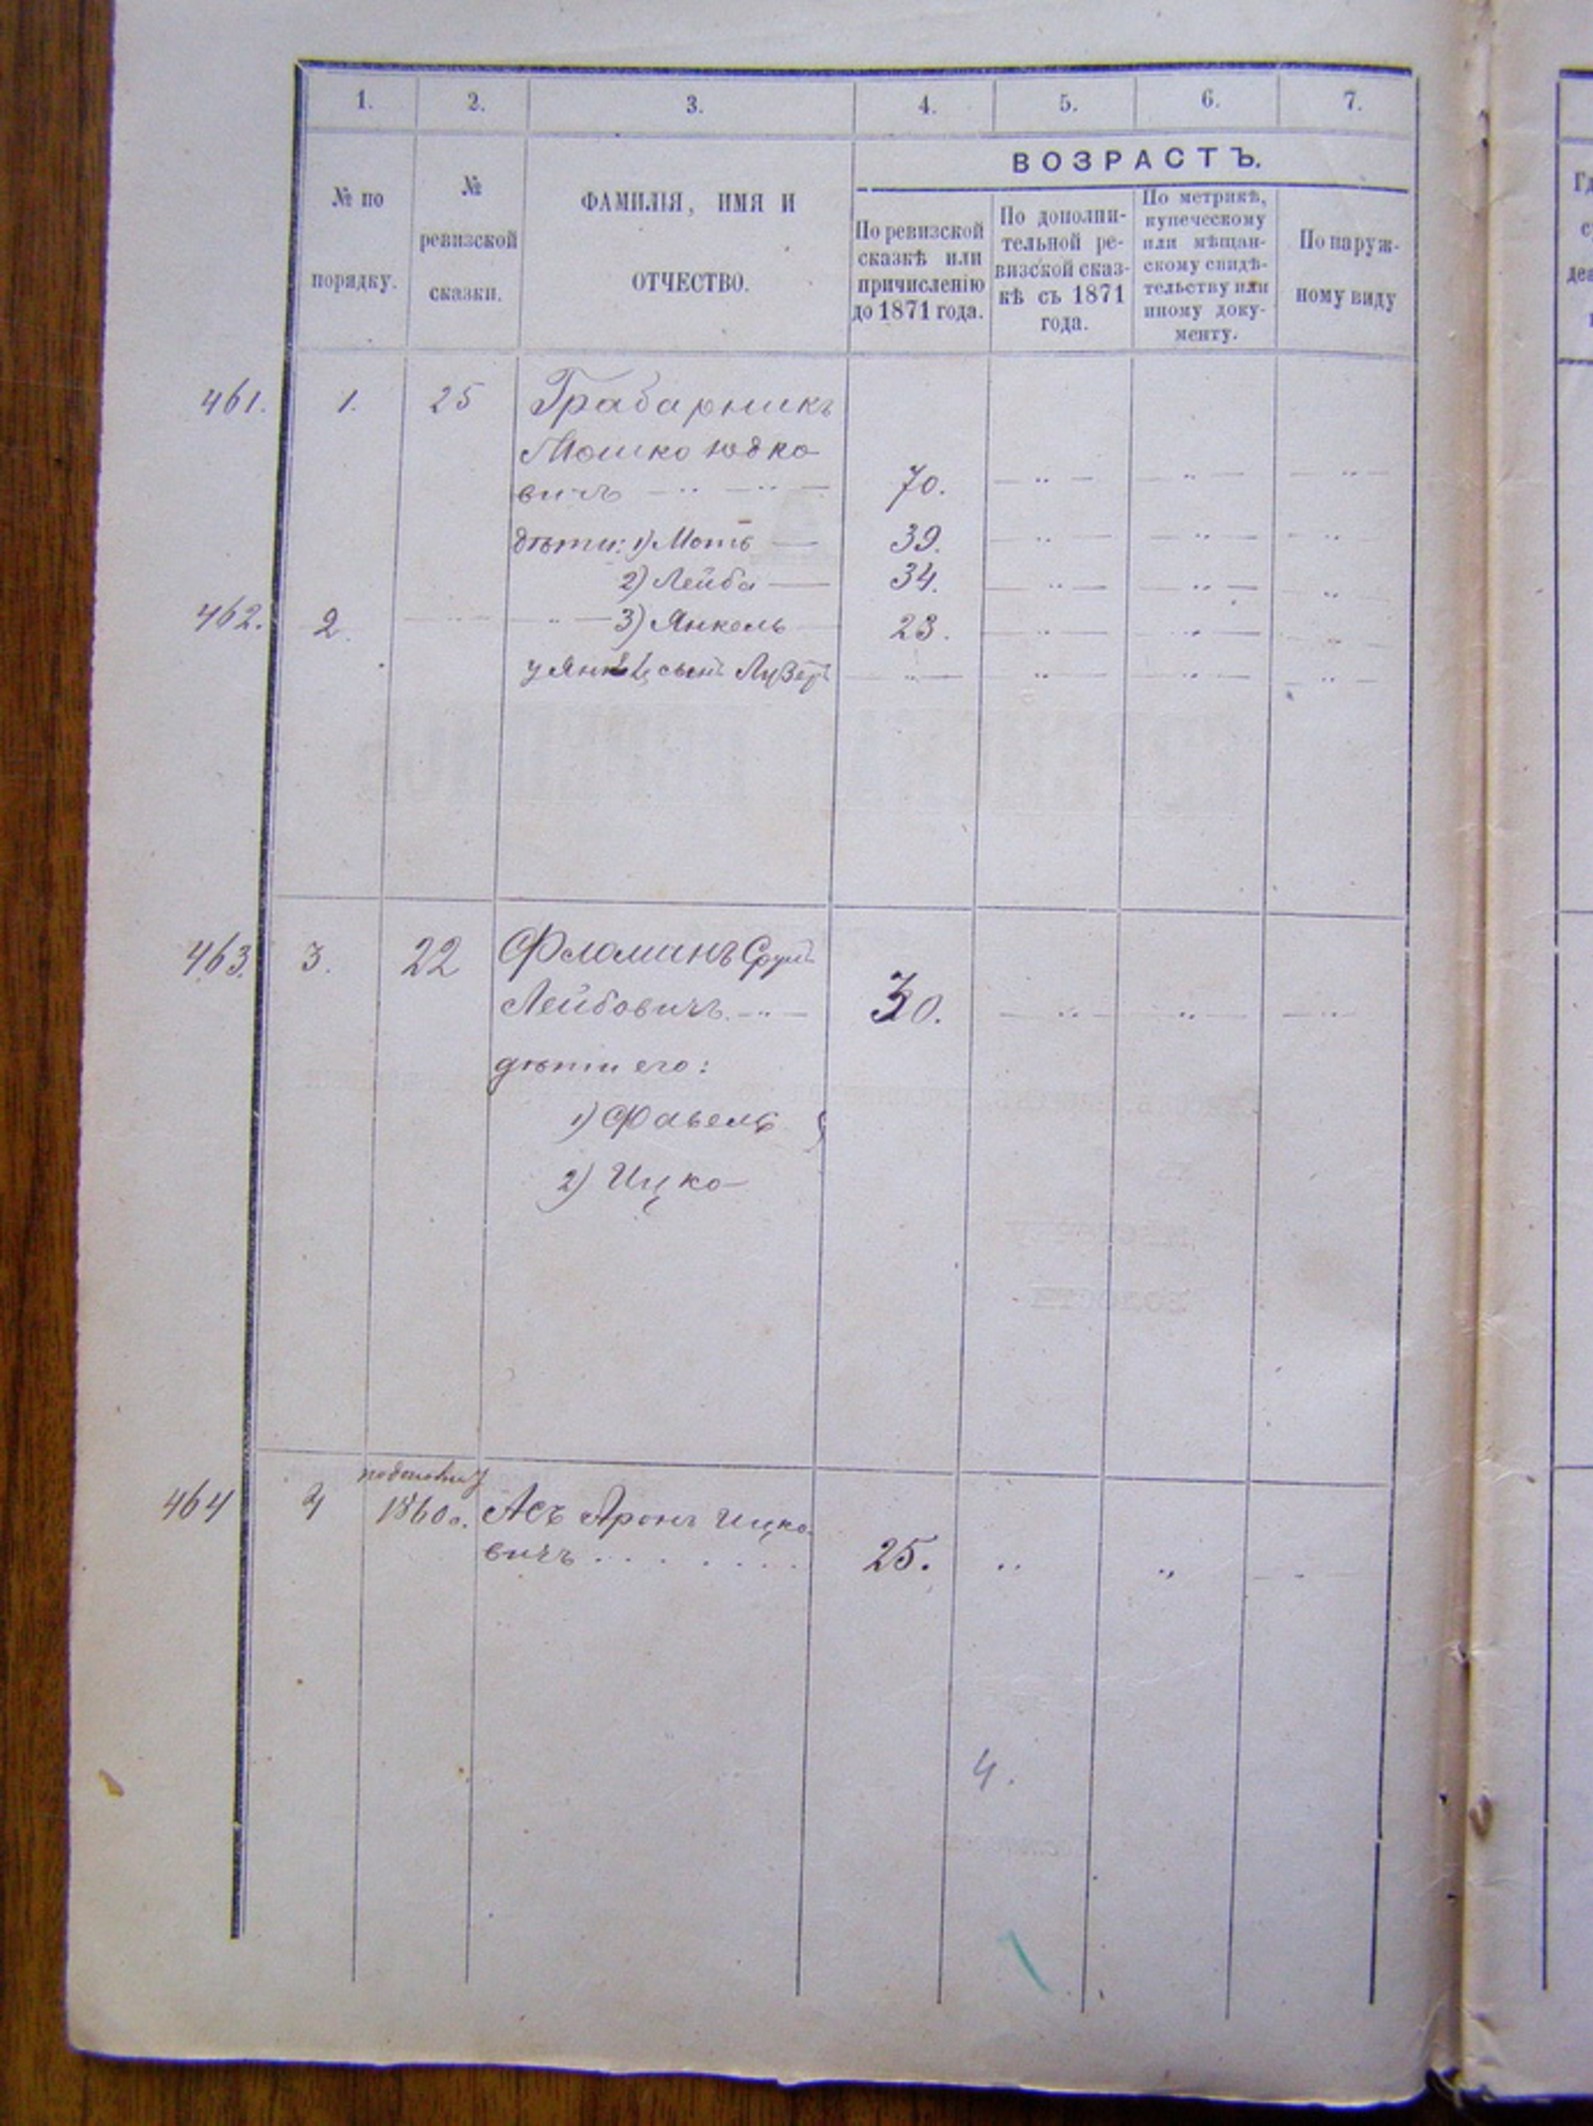 1. 2. 3. 4. 5. 6. 7.
№ по порядку.
№ ревизской сказки.
ФАМИЛІЯ, ИМЯ И
ОТЧЕСТВО.
ВОЗРАСТЪ.
По ревизской
сказкѣ или
причисленію
до 1871 года.
По дополни-
тельной ре-
визской сказ-
кѣ съ 1871
года.
По метрикѣ,
купеческому
или мѣщан-
скому свидѣ-
тельству или
иному доку-
менту.
По наруж-
ному виду
461. 1. 25 Грабарникъ
Мошко Юдко
вичъ 70.
дѣти: 1) Моть 39.
2) Лейба 34.
462. 2. 3) Янкель 23.
у сынъ
463. 3. 22 Фломанъ Сруль
Лейбовичъ 30.
дѣти его:
1) Фавель
2) Ицко
464 4 1860 г. Асъ Аронъ Ицко-
вичъ 25.
4.